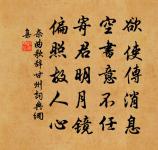 欲使傳消息
空書意不任
寄君明月鏡
偏照故人心
杂曲歌辞甘州詞典網
集